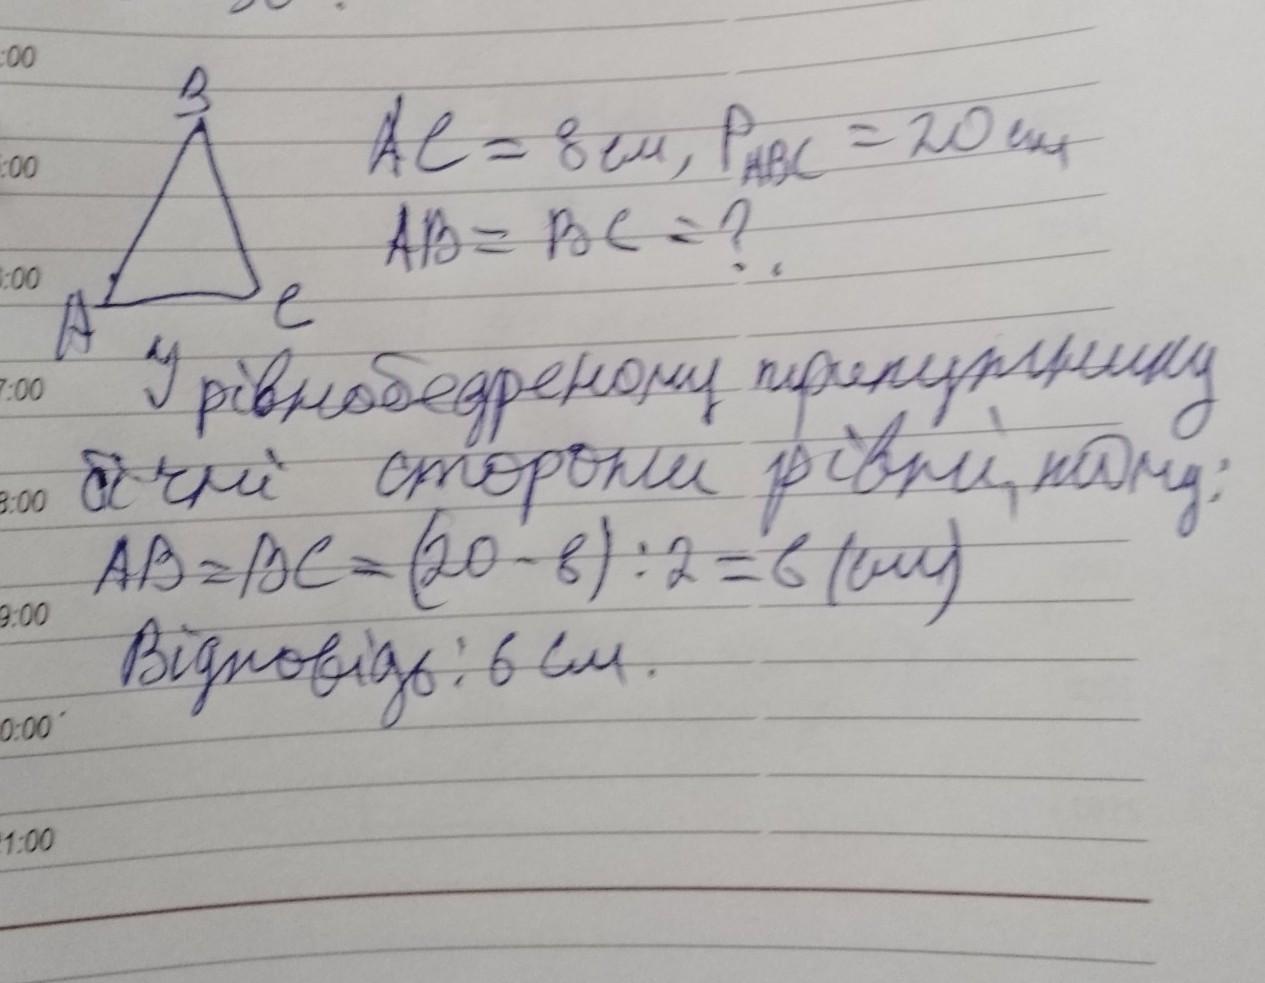 :00
B
AC = 8 см, P ABC = 20 см
:00
AB = BC = ?.
:00
A
C
У рівнобедреному трикутнику
7:00
бічні сторони рівні, тому:
8:00
AB = BC = (20 - 8) : 2 = 6 (см)
9:00
Відповідь: 6 см.
0:00
1:00